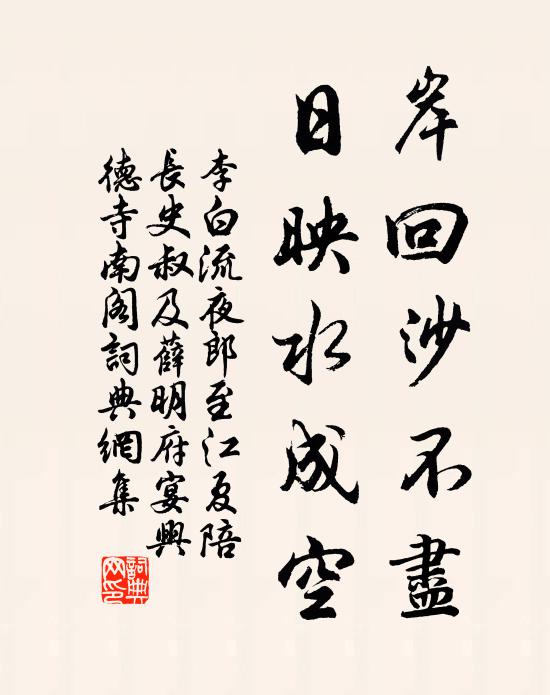 岸回沙不盡
日映水成空
李白流夜郎至江夏陪
長史叔及薛明府宴興
德寺南閣詞典網集
詞典
网印